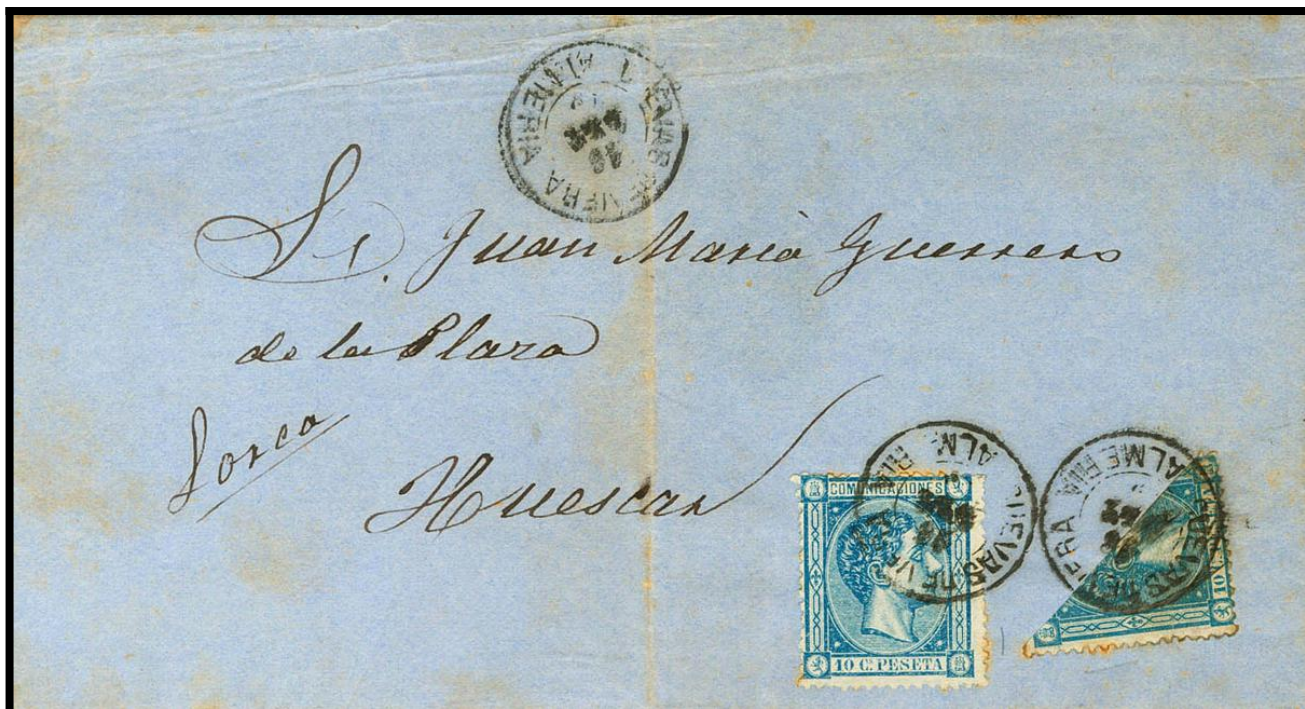 CUEVAS DE VERA
ALMERIA
Sr. Juan Maria Guerrero
de la Plaza
Lorca
Huescar
CUEVAS DE VERA
ALMERIA
CUEVAS DE VERA
ALMERIA
COMUNICACIONES
10 Cs PESETA
10